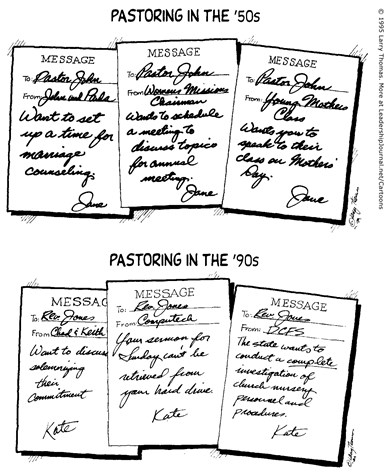 PASTORING IN THE '50s
© 1995 Larry Thomas. More at LeadershipJournal.net/Cartoons
MESSAGE
To: Pastor John
From: John and Barb
Want to set
up a time for
marriage
counseling.
Jane
MESSAGE
To: Pastor John
From: Womens Missions
Chairman
Wants to schedule
a meeting to
discuss topics
for annual
meeting.
Jane
MESSAGE
To: Pastor John
From: Young Mothers
Class
Wants you to
speak to their
class on Mothers'
Day.
Jane
PASTORING IN THE '90s
MESSAG
To: Rev. Jones
From: Chad & Keith
Want to discuss
solemnizing
their
commitment
Kate
MESSAGE
To: Rev. Jones
From: Computech
Your sermon for
Sunday can't be
retrieved from
your hard drive.
Kate
MESSAGE
To: Rev. Jones
From: DCFS
The state wants to
conduct a complete
investigation of
church nursery
personnel and
procedures.
Kate